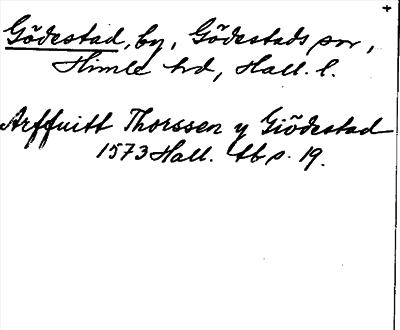 +
Gödestad, by, Gödestads snr,
Himle hrd, Hall. l.
Arffuitt Thorssen y Giödestad
1573 Hall. tb s. 19.